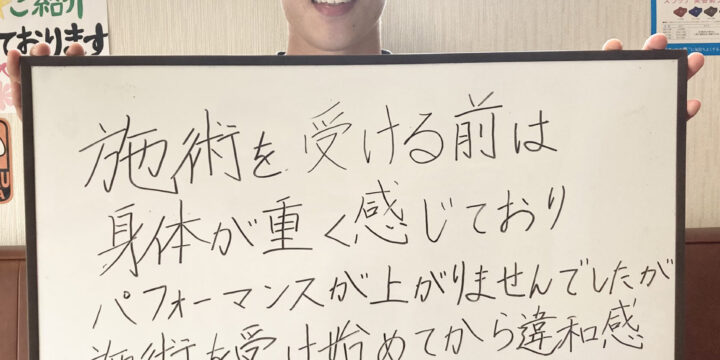 ご紹介
ております
施術を受ける前は
身体が重く感じており
パフォーマンスが上がりませんでしたが
施術を受け始めてから違和感